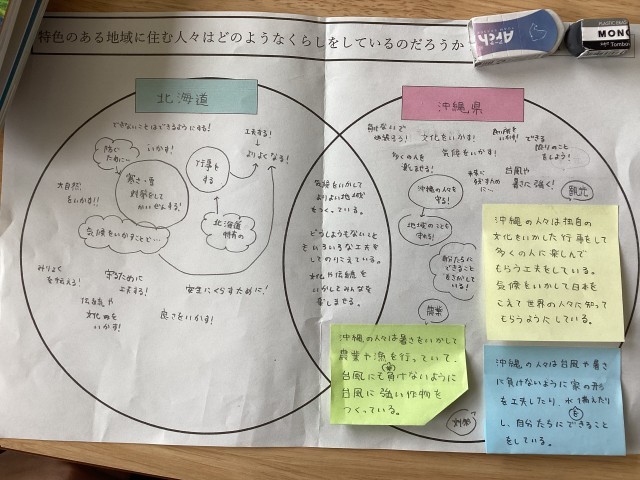 特色のある地域に住む人々はどのようなくらしをしているのだろうか
Arch
PLASTIC ERAS
MONO
Tombow
北海道
できないことはできるようにする!
工夫する!
よりよくなる!
防ぐ
ために…
いかす!
行事を
する
寒さ・雪
対策をして
かいぜんする!
大自然
をいかす!!
北海道
特有の
気候をいかすことで…
みりょく
を伝える!
守るために
工夫する!
安全にくらすために!
伝統や
文化をを
いかす!
良さをいかす!
気候をいかして
よりよい地域
をつくっている。
どうしようもないこと
もいろいろな工夫を
してのりこえている。
文化や伝統を
いかしてみんなを
楽しませる。
沖縄県
負けないで
がんばろう!
文化をいかす!
自然を
いかす!
できる
限りのこと
をしよう!
多くの人を
楽しませる!
気候をいかす!
台風や
暑さに強く!
沖縄の人々を
守る!
地域のことも
守れる!
自分たちに
できること
をさがして
いる!
観光
沖縄の人々は独自の
文化をいかした行事をして
多くの人に楽しんで
もらう工夫をしている。
気候をいかして日本を
こえて世界の人々に知って
もらうようにしている。
農業
沖縄の人々は暑さをいかして
農業や漁を行っていて、
台風にも負けないように
台風に強い作物を
つくっている。
対策
沖縄の人々は台風や暑さ
に負けないように家の形
を工夫したり、水を備えたり
し、自分たちにできること
をしている。